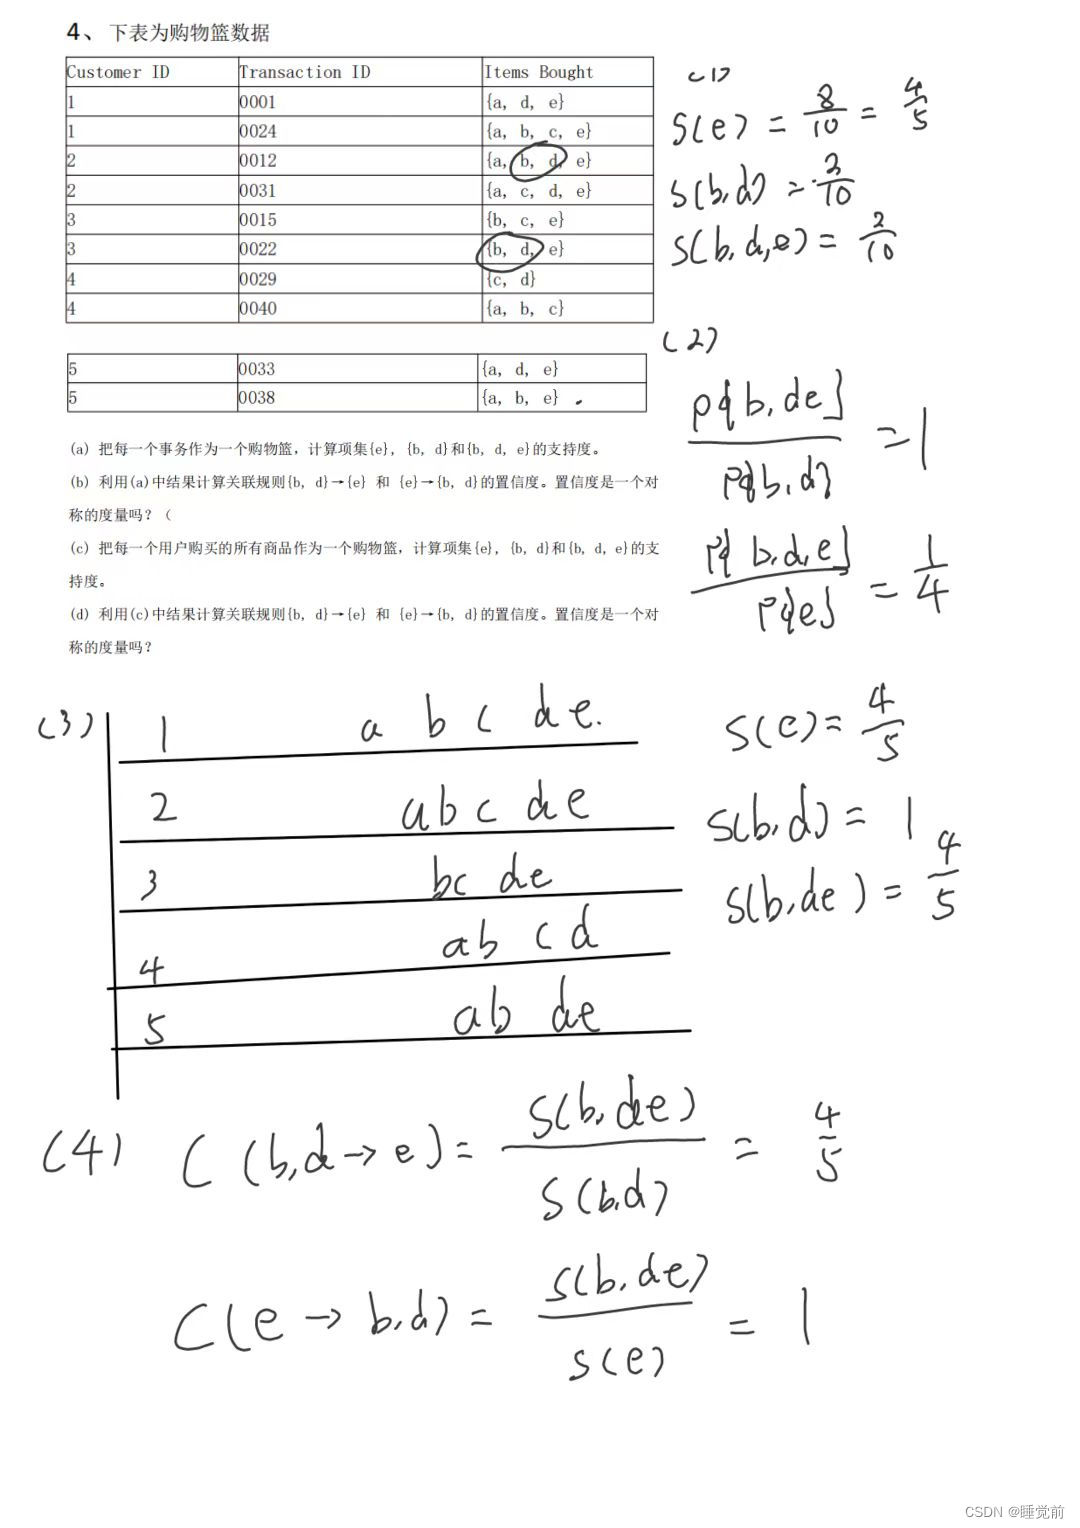 4、下表为购物篮数据
Customer ID Transaction ID Items Bought
1 0001 {a, d, e}
1 0024 {a, b, c, e}
2 0012 {a, b, d, e}
2 0031 {a, c, d, e}
3 0015 {b, c, e}
3 0022 {b, d, e}
4 0029 {c, d}
4 0040 {a, b, c}
5 0033 {a, d, e}
5 0038 {a, b, e}
(1)
S(e) = 8/10 = 4/5
S(b,d) = 2/10
S(b,d,e) = 2/10
(2)
P{b,de} / P{b,d} = 1
P{b,d,e} / P{e} = 1/4
(a) 把每一个事务作为一个购物篮，计算项集{e}, {b, d}和{b, d, e}的支持度。
(b) 利用(a)中结果计算关联规则{b, d}→{e} 和 {e}→{b, d}的置信度。置信度是一个对
称的度量吗？（
(c) 把每一个用户购买的所有商品作为一个购物篮，计算项集{e}, {b, d}和{b, d, e}的支
持度。
(d) 利用(c)中结果计算关联规则{b, d}→{e} 和 {e}→{b, d}的置信度。置信度是一个对
称的度量吗？
(3)
1 a b c de.
2 abc de
3 bc de
4 ab cd
5 ab de
S(e) = 4/5
S(b,d) = 1
S(b,de) = 4/5
(4) C(b,d→e) = S(b,de) / S(b,d) = 4/5
C(e→b,d) = S(b,de) / S(e) = 1
CSDN @睡觉前